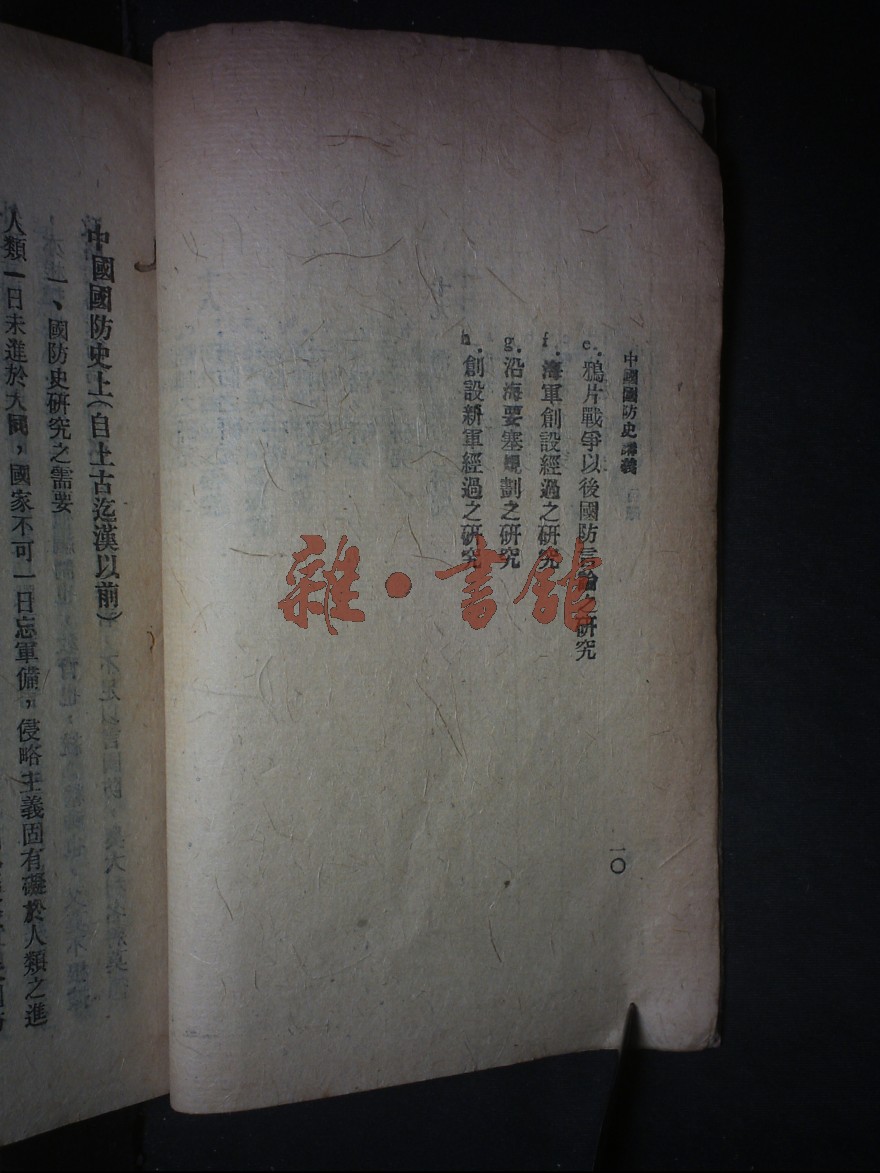 中國國防史講義 目錄
e.鴉片戰爭以後國防言論之研究
f.海軍創設經過之研究
g.沿海要塞規劃之研究
h.創設新軍經過之研究
一〇
雜·書館
中國國防史上(自上古迄漢以前)
一、國防史研究之需要
人類一日未進於大同，國家不可一日忘軍備，侵略主義固有礙於人類之進